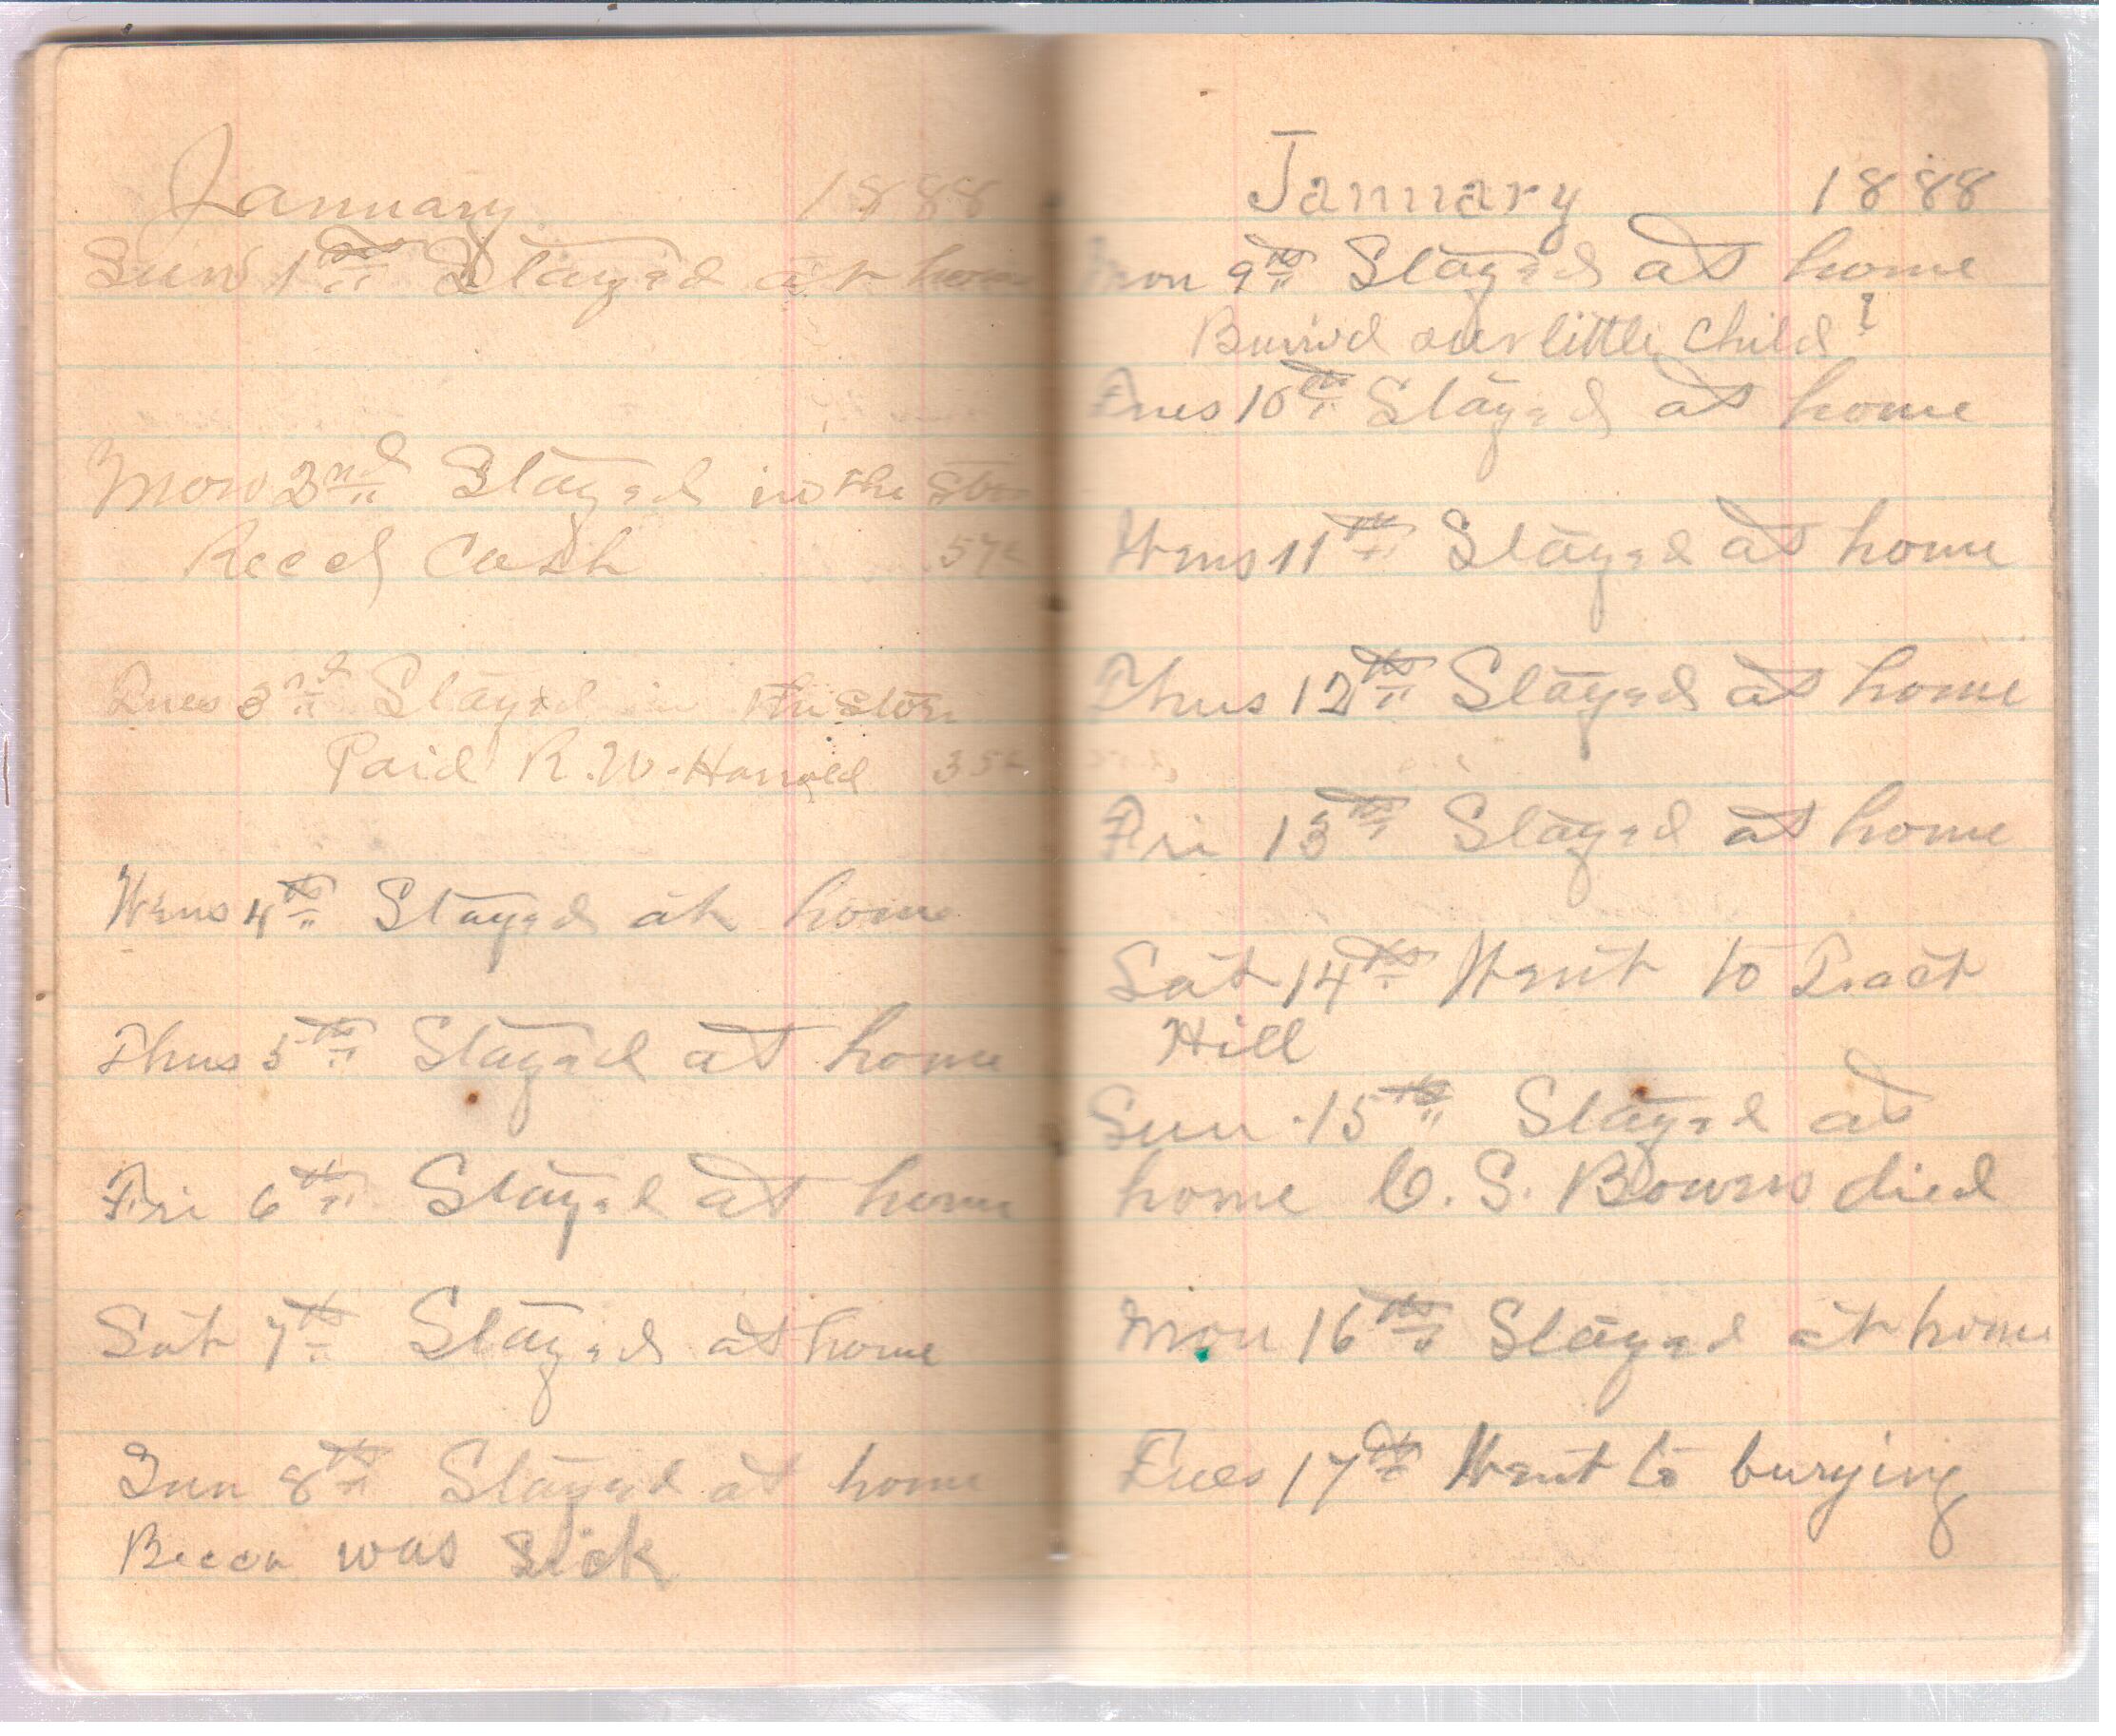 January 1888
Sun 1st Stayed at home
Mon 2nd Stayed in the Stor
Recd Cash 57c
Tues 3rd Stayed in the store
Paid R. W. Harrold 35c
Wens 4th Stayed at home
Thus 5th Stayed at home
Fri 6th Stayed at home
Sat 7th Stayed at home
Sun 8th Stayed at home
was sick
January 1888
Mon 9th Stayed at home
Buried our little child
Tues 10th Stayed at home
Wens 11th Stayed at home
Thus 12th Stayed at home
Fri 13th Stayed at home
Sat 14th Went to
Hill
Sun 15th Stayed at
home C. S. Bowers died
Mon 16th Stayed at home
Tues 17th Went to burying